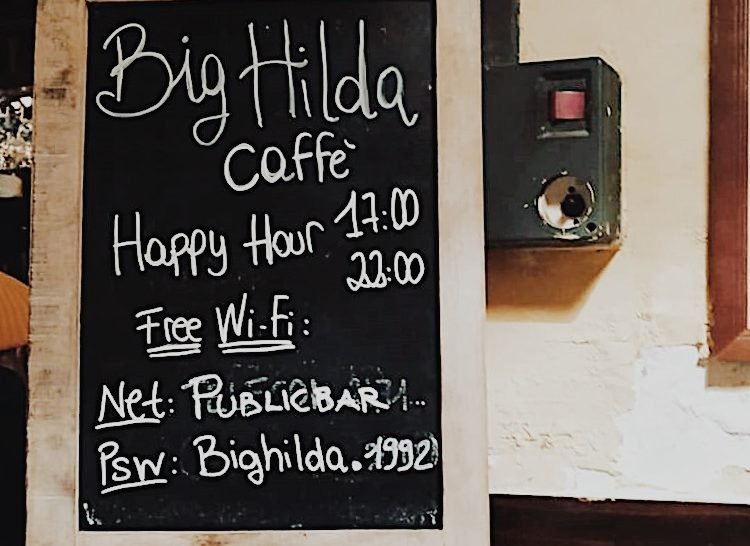 Big Hilda
Caffè
Happy Hour 17:00
22:00
Free Wi-Fi:
Net: PUBLICBAR
Psw: Bighilda.1992